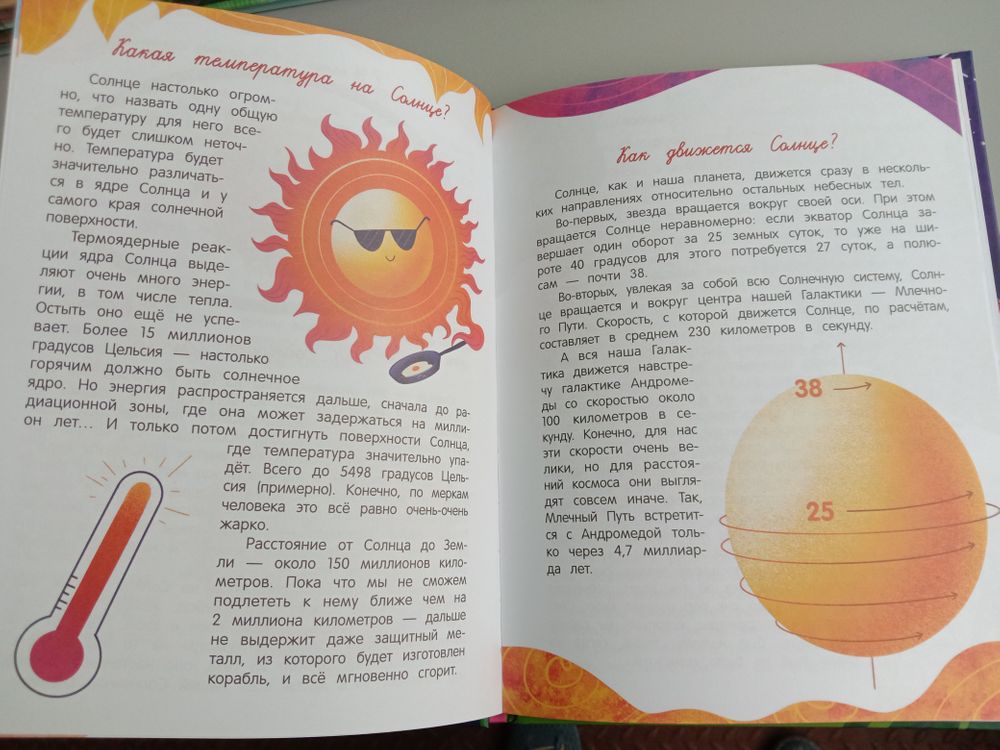 Какая температура на Солнце?
Солнце настолько огром-
но, что назвать одну общую
температуру для него все-
го будет слишком неточ-
но. Температура будет
значительно различать-
ся в ядре Солнца и у
самого края солнечной
поверхности.
Термоядерные реак-
ции ядра Солнца выде-
ляют очень много энер-
гии, в том числе тепла.
Остыть оно ещё не успе-
вает. Более 15 миллионов
градусов Цельсия — настолько
горячим должно быть солнечное
ядро. Но энергия распространяется дальше, сначала до ра-
диационной зоны, где она может задержаться на милли-
он лет... И только потом достигнуть поверхности Солнца,
где температура значительно упа-
дёт. Всего до 5498 градусов Цель-
сия (примерно). Конечно, по меркам
человека это всё равно очень-очень
жарко.
Расстояние от Солнца до Зем-
ли — около 150 миллионов кило-
метров. Пока что мы не сможем
подлететь к нему ближе чем на
2 миллиона километров — дальше
не выдержит даже защитный ме-
талл, из которого будет изготовлен
корабль, и всё мгновенно сгорит.
Как движется Солнце?
Солнце, как и наша планета, движется сразу в несколь-
ких направлениях относительно остальных небесных тел.
Во-первых, звезда вращается вокруг своей оси. При этом
вращается Солнце неравномерно: если экватор Солнца за-
вершает один оборот за 25 земных суток, то уже на ши-
роте 40 градусов для этого потребуется 27 суток, а полю-
сам — почти 38.
Во-вторых, увлекая за собой всю Солнечную систему, Солн-
це вращается и вокруг центра нашей Галактики — Млечно-
го Пути. Скорость, с которой движется Солнце, по расчётам,
составляет в среднем 230 километров в секунду.
А вся наша Галак-
тика движется навстре-
чу галактике Андроме-
ды со скоростью около
100 километров в се-
кунду. Конечно, для нас
эти скорости очень ве-
лики, но для расстоя-
ний космоса они выгля-
дят совсем иначе. Так,
Млечный Путь встретит-
ся с Андромедой толь-
ко через 4,7 миллиар-
да лет.
38
25